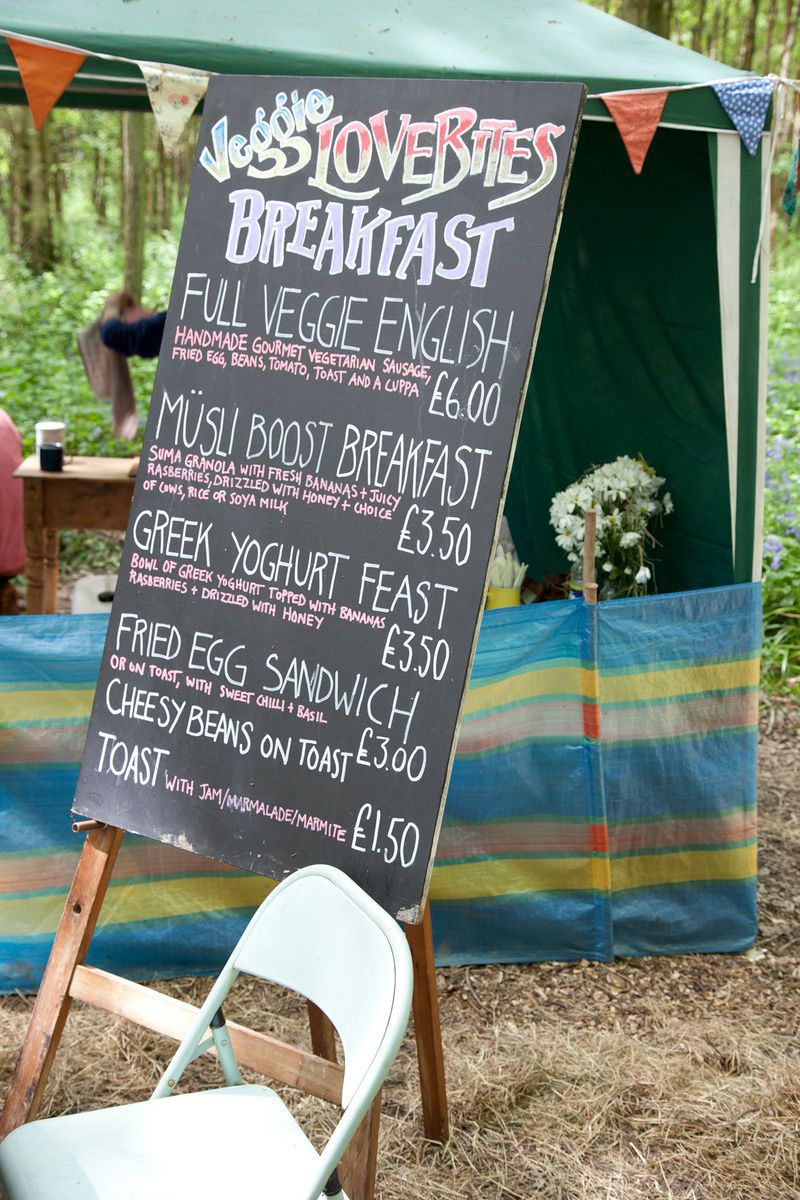 Veggie LOVEBITES
BREAKFAST
FULL VEGGIE ENGLISH
HANDMADE GOURMET VEGETARIAN SAUSAGE,
FRIED EGG, BEANS, TOMATO, TOAST AND A CUPPA
£6.00
MÜSLI BOOST BREAKFAST
SUMA GRANOLA WITH FRESH BANANAS + JUICY
RASBERRIES, DRIZZLED WITH HONEY + CHOICE
OF COWS, RICE OR SOYA MILK
£3.50
GREEK YOGHURT FEAST
BOWL OF GREEK YOGHURT TOPPED WITH BANANAS
RASBERRIES + DRIZZLED WITH HONEY
£3.50
FRIED EGG SANDWICH
OR ON TOAST, WITH SWEET CHILLI + BASIL
CHEESY BEANS ON TOAST £3.00
TOAST WITH JAM/MARMALADE/MARMITE £1.50